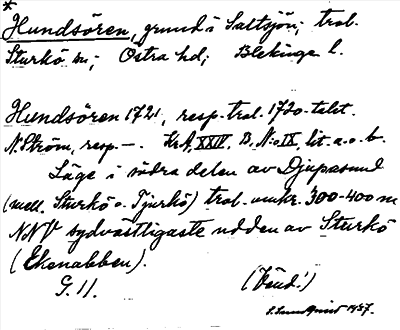 *
Hundsören, grund i Saltsjön; trol.
Sturkö sn; Östra hd; Blekinge l.
Hundsören 1721, resp. trol. 1720-talet.
N. Ström, resp. —. KrA, XXIV, B, N:o IX, lit. a. o. b.
Läge i södra delen av Djupasund
(mell. Sturkö o. Tjurkö) trol. omkr. 300-400 m
NNV sydvästligaste udden av Sturkö
(Ekenabben).
G. 11. (Känd!)
S. Lundquist 1937.